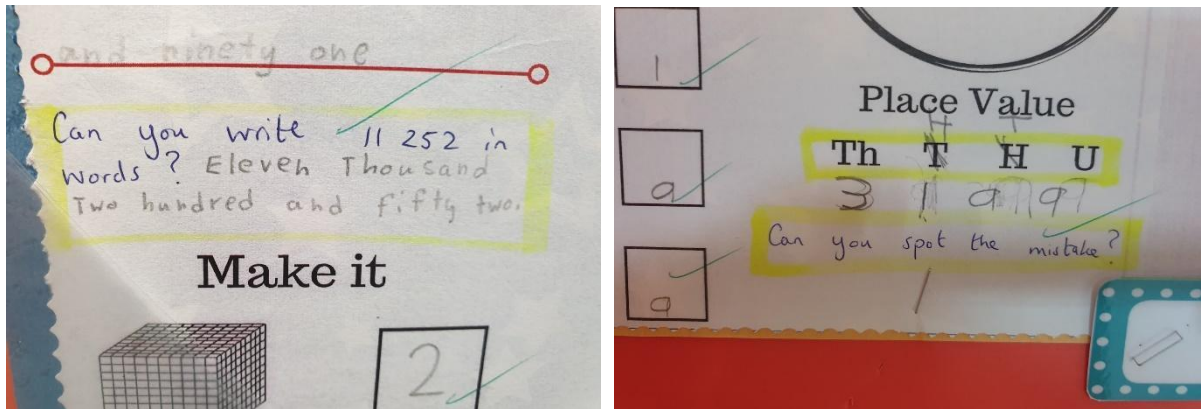 and ninety one
Can you write 11 252 in
words? Eleven Thousand
Two hundred and fifty two.
Make it
2
1
9
9
Place Value
H T
Th T H U
3 1 9 9
Can you spot the mistake?